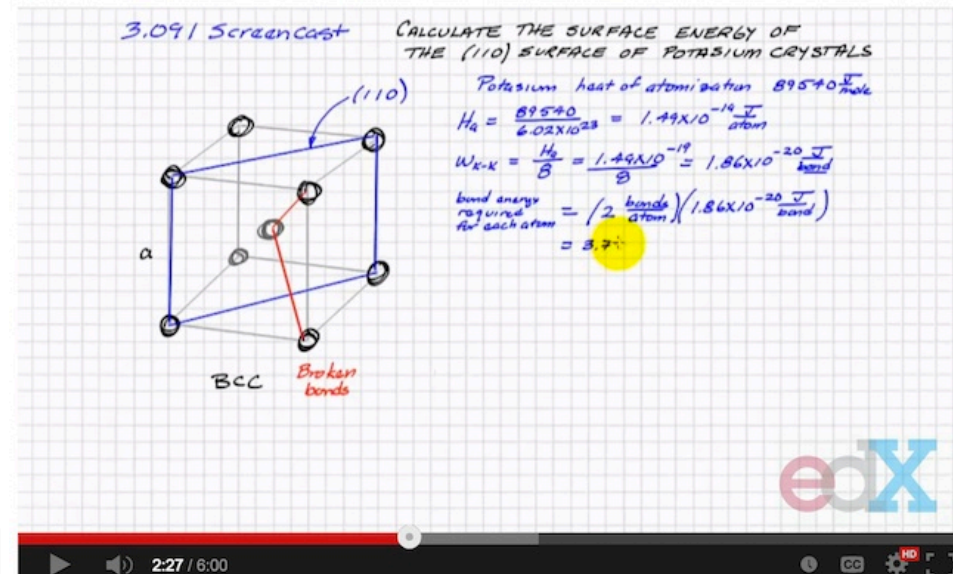 3.091 Screencast
CALCULATE THE SURFACE ENERGY OF
THE (110) SURFACE OF POTASIUM CRYSTALS
Potasium heat of atomization 89540 J/mole
(110)
Ha = 89540 / 6.02×10^23 = 1.49×10^-19 J/atom
W_K-K = Ha/8 = 1.49×10^-19 / 8 = 1.86×10^-20 J/bond
bond energy
required
for each atom
= (2 bonds/atom)(1.86×10^-20 J/bond)
= 3.7
a
BCC
Broken
bonds
edX
2:27 / 6:00
CC
HD